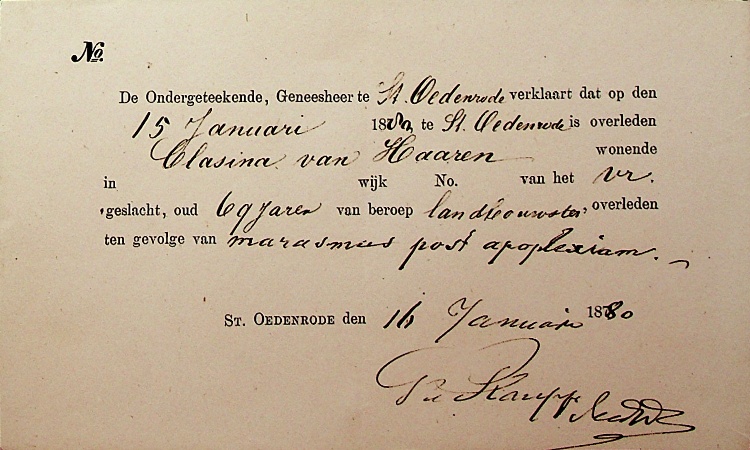 No.
De Ondergeteekende, Geneesheer te St. Oedenrode verklaart dat op den
15 Januari 1880 te St. Oedenrode is overleden
Clasina van Haaren wonende
in wijk No. van het vr.
geslacht, oud 69 jaren van beroep landbouwster, overleden
ten gevolge van marasmus post apoplexiam.
St. Oedenrode den 16 Januari 1880